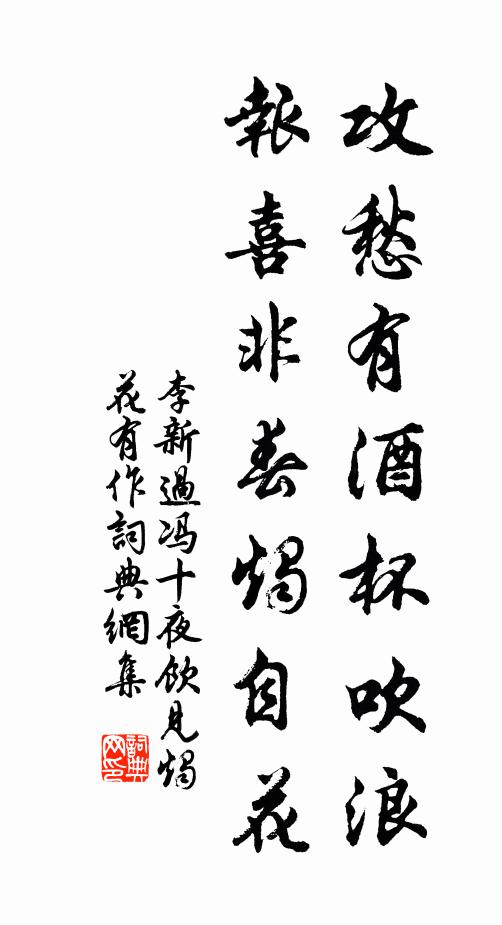 攻愁有酒杯吹浪
報喜非春燭自花
李新過馮十夜飲見燭
花有作詞典網集
詞典
网印